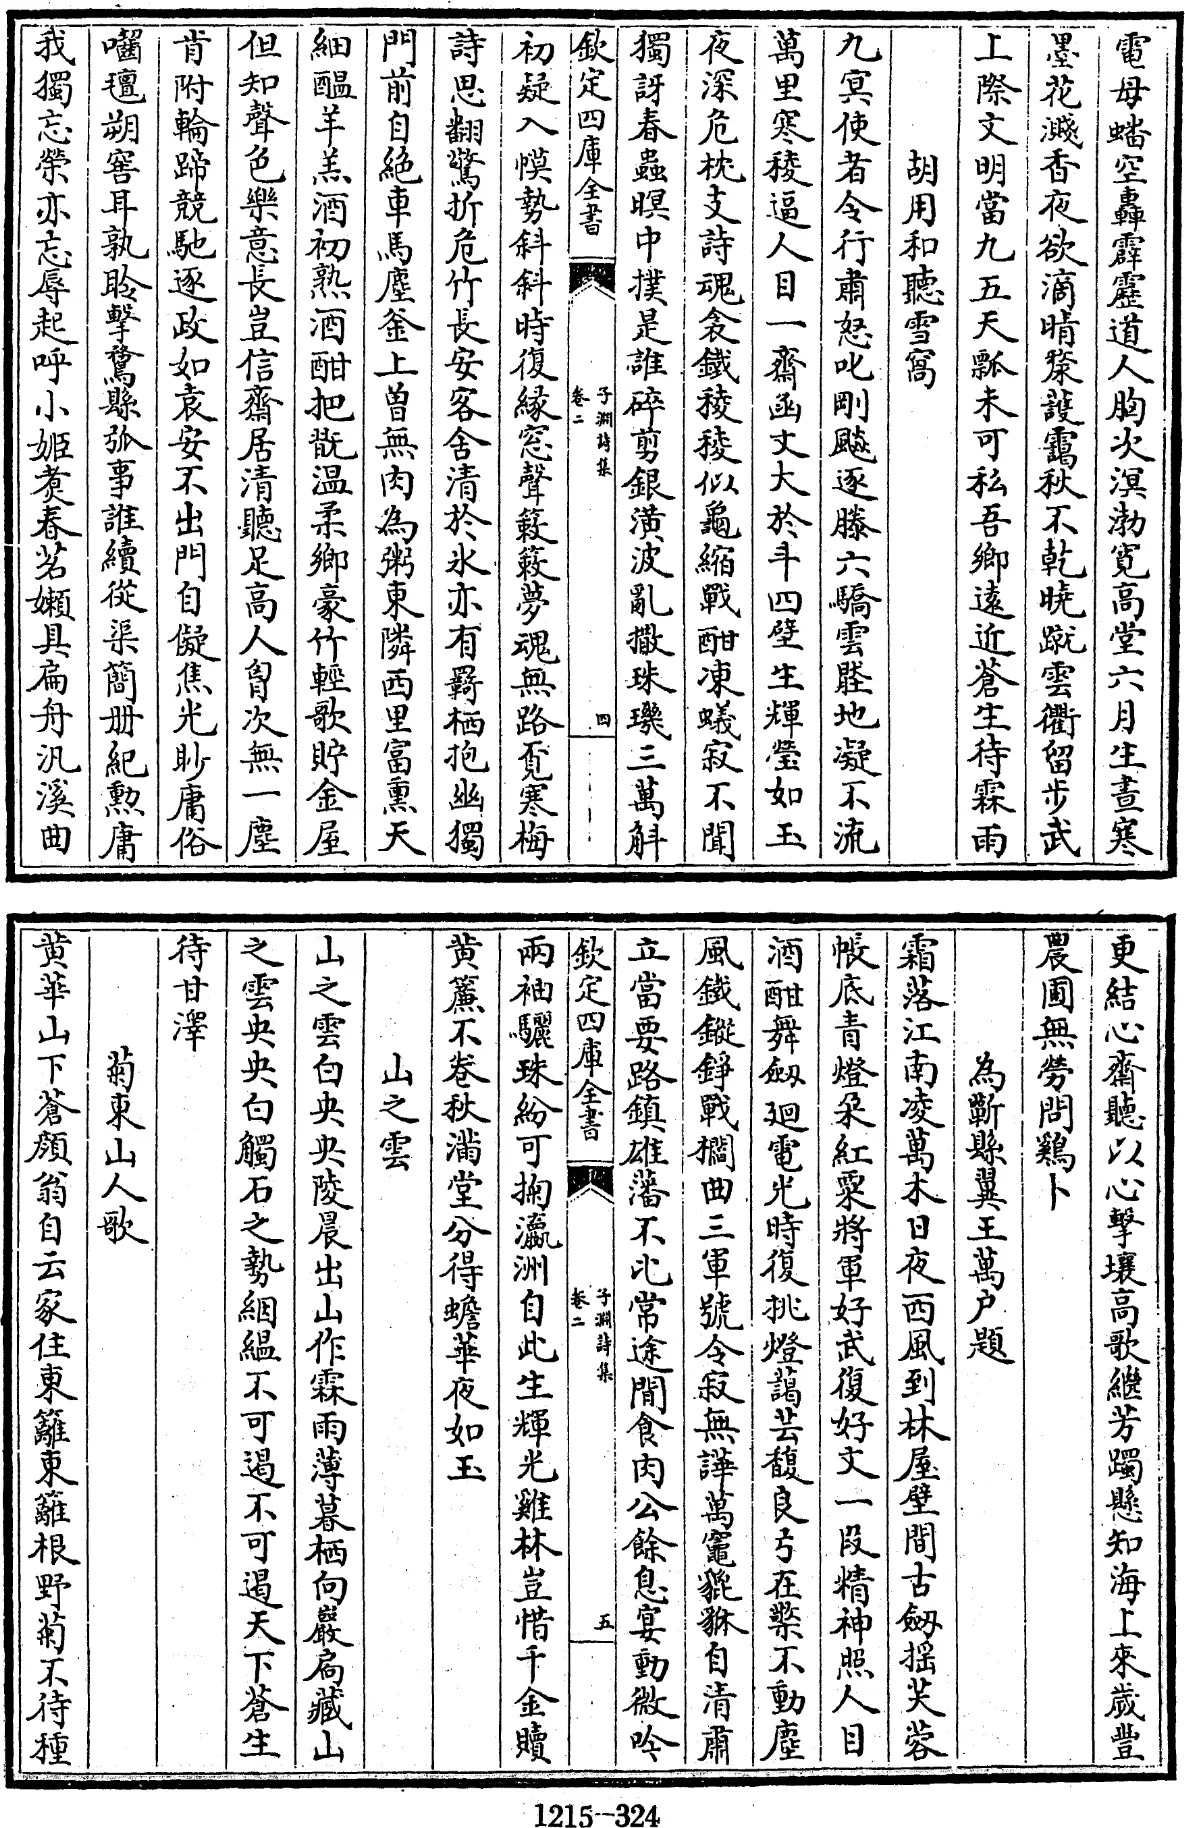 電母蟠空轟霹靂道人胸次溟渤寛高堂六月生晝寒
墨花濺香夜欲滴晴蔡護靄秋不乾曉蹴雲衢留步武
上際文明當九五天瓢未可私吾鄉遠近蒼生待霖雨
胡用和聽雪窩
九冥使者令行肅怒叱剛飈逐滕六驕雲壓地凝不流
萬里寒稜逼人目一齋函丈大於斗四壁生輝瑩如玉
夜深危枕支詩魂衾鐵稜稜似龜縮戰酣凍蟻寂不聞
獨訝春蟲暝中撲是誰碎剪銀潢波亂撒珠璣三萬斛
欽定四庫全書
子淵詩集
卷二
四
初疑入幙勢斜斜時復縁窓聲簌簌夢魂無路覓寒梅
詩思翻驚折危竹長安客舍清於氷亦有羇栖抱幽獨
門前自絶車馬塵釜上曽無肉為粥東隣西里富熏天
細醖羊羔酒初熟酒酣把翫温柔鄉豪竹輕歌貯金屋
但知聲色樂意長豈信齋居清聽足高人胷次無一塵
肯附輪蹄競馳逐政如袁安不出門自儗焦光眇庸俗
囓氊朔窖耳孰聆擊鶩縣弧事誰續從渠簡册紀勲庸
我獨忘榮亦忘辱起呼小姬煑春茗嬾具扁舟汎溪曲
更結心齋聽以心擊壤高歌繼芳躅懸知海上來歲豐
農圃無勞問鷄卜
為蘄縣翼王萬户題
霜落江南凌萬木日夜西風到林屋壁間古劔揺芙蓉
帳底青燈朶紅粟將軍好武復好文一段精神照人目
酒酣舞劔迴電光時復挑燈藹芸馥良弓在櫜不動塵
風鐵鏦錚戰櫩曲三軍號令寂無譁萬竈貔貅自清肅
立當要路鎮雄藩不比常途間食肉公餘息宴動微吟
欽定四庫全書
子淵詩集
卷二
五
兩袖驪珠紛可掬瀛洲自此生輝光雞林豈惜千金贖
黄簾不卷秋滿堂分得蟾華夜如玉
山之雲
山之雲白央央陵晨出山作霖雨薄暮栖向巖扃藏山
之雲央央白觸石之勢絪緼不可遏不可遏天下蒼生
待甘澤
菊東山人歌
黄華山下蒼顔翁自云家住東籬東籬根野菊不待種
1215-324